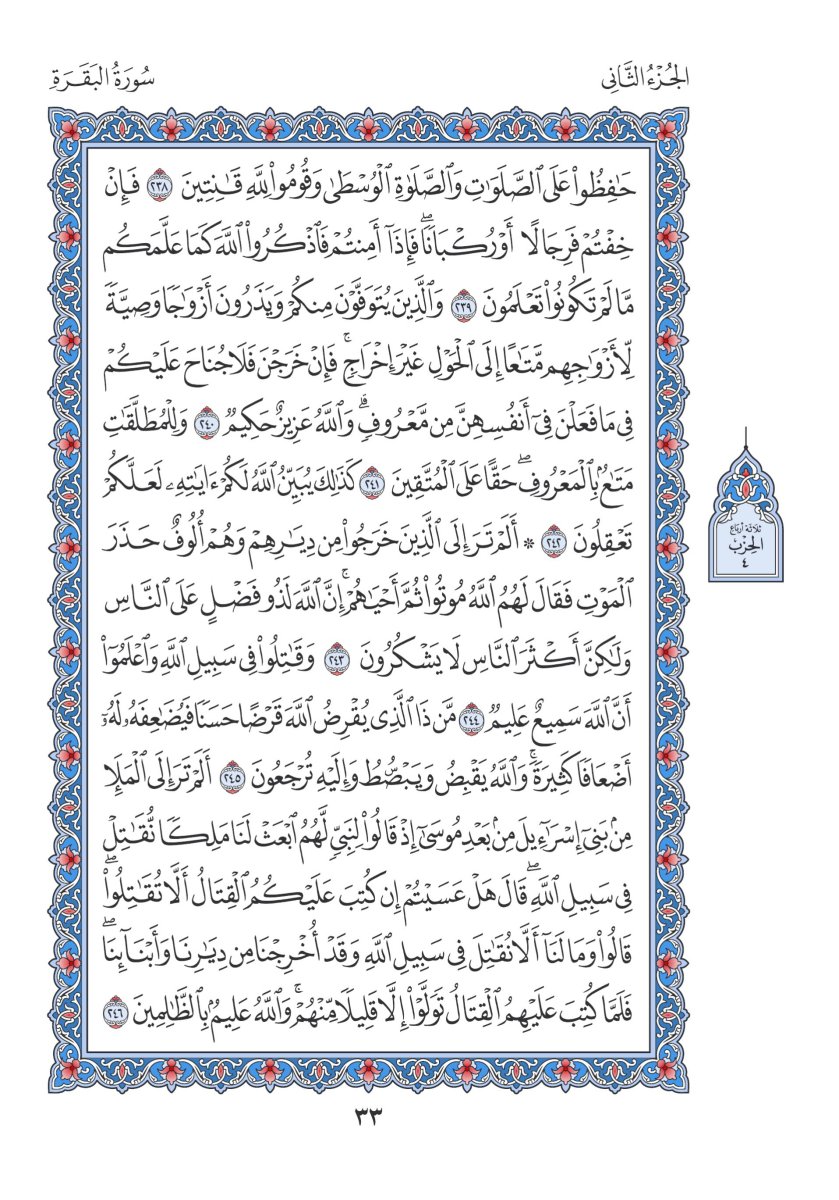 الجُزْءُ الثَّانِي
سُورَةُ البَقَرَةِ
حَٰفِظُواْ عَلَى ٱلصَّلَوَٰتِ وَٱلصَّلَوٰةِ ٱلۡوُسۡطَىٰ وَقُومُواْ لِلَّهِ قَٰنِتِينَ ٢٣٨ فَإِنۡ
خِفۡتُمۡ فَرِجَالًا أَوۡ رُكۡبَانٗاۖ فَإِذَآ أَمِنتُمۡ فَٱذۡكُرُواْ ٱللَّهَ كَمَا عَلَّمَكُم
مَّا لَمۡ تَكُونُواْ تَعۡلَمُونَ ٢٣٩ وَٱلَّذِينَ يُتَوَفَّوۡنَ مِنكُمۡ وَيَذَرُونَ أَزۡوَٰجٗا وَصِيَّةٗ
لِّأَزۡوَٰجِهِم مَّتَٰعًا إِلَى ٱلۡحَوۡلِ غَيۡرَ إِخۡرَاجٖۚ فَإِنۡ خَرَجۡنَ فَلَا جُنَاحَ عَلَيۡكُمۡ
فِي مَا فَعَلۡنَ فِيٓ أَنفُسِهِنَّ مِن مَّعۡرُوفٖۗ وَٱللَّهُ عَزِيزٌ حَكِيمٞ ٢٤٠ وَلِلۡمُطَلَّقَٰتِ
مَتَٰعُۢ بِٱلۡمَعۡرُوفِۖ حَقًّا عَلَى ٱلۡمُتَّقِينَ ٢٤١ كَذَٰلِكَ يُبَيِّنُ ٱللَّهُ لَكُمۡ ءَايَٰتِهِۦ لَعَلَّكُمۡ
تَعۡقِلُونَ ٢٤٢ ۞ أَلَمۡ تَرَ إِلَى ٱلَّذِينَ خَرَجُواْ مِن دِيَٰرِهِمۡ وَهُمۡ أُلُوفٌ حَذَرَ
ٱلۡمَوۡتِ فَقَالَ لَهُمُ ٱللَّهُ مُوتُواْ ثُمَّ أَحۡيَٰهُمۡۚ إِنَّ ٱللَّهَ لَذُو فَضۡلٍ عَلَى ٱلنَّاسِ
وَلَٰكِنَّ أَكۡثَرَ ٱلنَّاسِ لَا يَشۡكُرُونَ ٢٤٣ وَقَٰتِلُواْ فِي سَبِيلِ ٱللَّهِ وَٱعۡلَمُوٓاْ
أَنَّ ٱللَّهَ سَمِيعٌ عَلِيمٞ ٢٤٤ مَّن ذَا ٱلَّذِي يُقۡرِضُ ٱللَّهَ قَرۡضًا حَسَنٗا فَيُضَٰعِفَهُۥ لَهُۥٓ
أَضۡعَافٗا كَثِيرَةٗۚ وَٱللَّهُ يَقۡبِضُ وَيَبۡصُۜطُ وَإِلَيۡهِ تُرۡجَعُونَ ٢٤٥ أَلَمۡ تَرَ إِلَى ٱلۡمَلَإِ
مِنۢ بَنِيٓ إِسۡرَٰٓءِيلَ مِنۢ بَعۡدِ مُوسَىٰٓ إِذۡ قَالُواْ لِنَبِيّٖ لَّهُمُ ٱبۡعَثۡ لَنَا مَلِكٗا نُّقَٰتِلۡ
فِي سَبِيلِ ٱللَّهِۖ قَالَ هَلۡ عَسَيۡتُمۡ إِن كُتِبَ عَلَيۡكُمُ ٱلۡقِتَالُ أَلَّا تُقَٰتِلُواْۖ
قَالُواْ وَمَا لَنَآ أَلَّا نُقَٰتِلَ فِي سَبِيلِ ٱللَّهِ وَقَدۡ أُخۡرِجۡنَا مِن دِيَٰرِنَا وَأَبۡنَآئِنَاۖ
فَلَمَّا كُتِبَ عَلَيۡهِمُ ٱلۡقِتَالُ تَوَلَّوۡاْ إِلَّا قَلِيلٗا مِّنۡهُمۡۚ وَٱللَّهُ عَلِيمُۢ بِٱلظَّٰلِمِينَ ٢٤٦
ثلاثة أرباع
الحِزْب
٤
٣٣